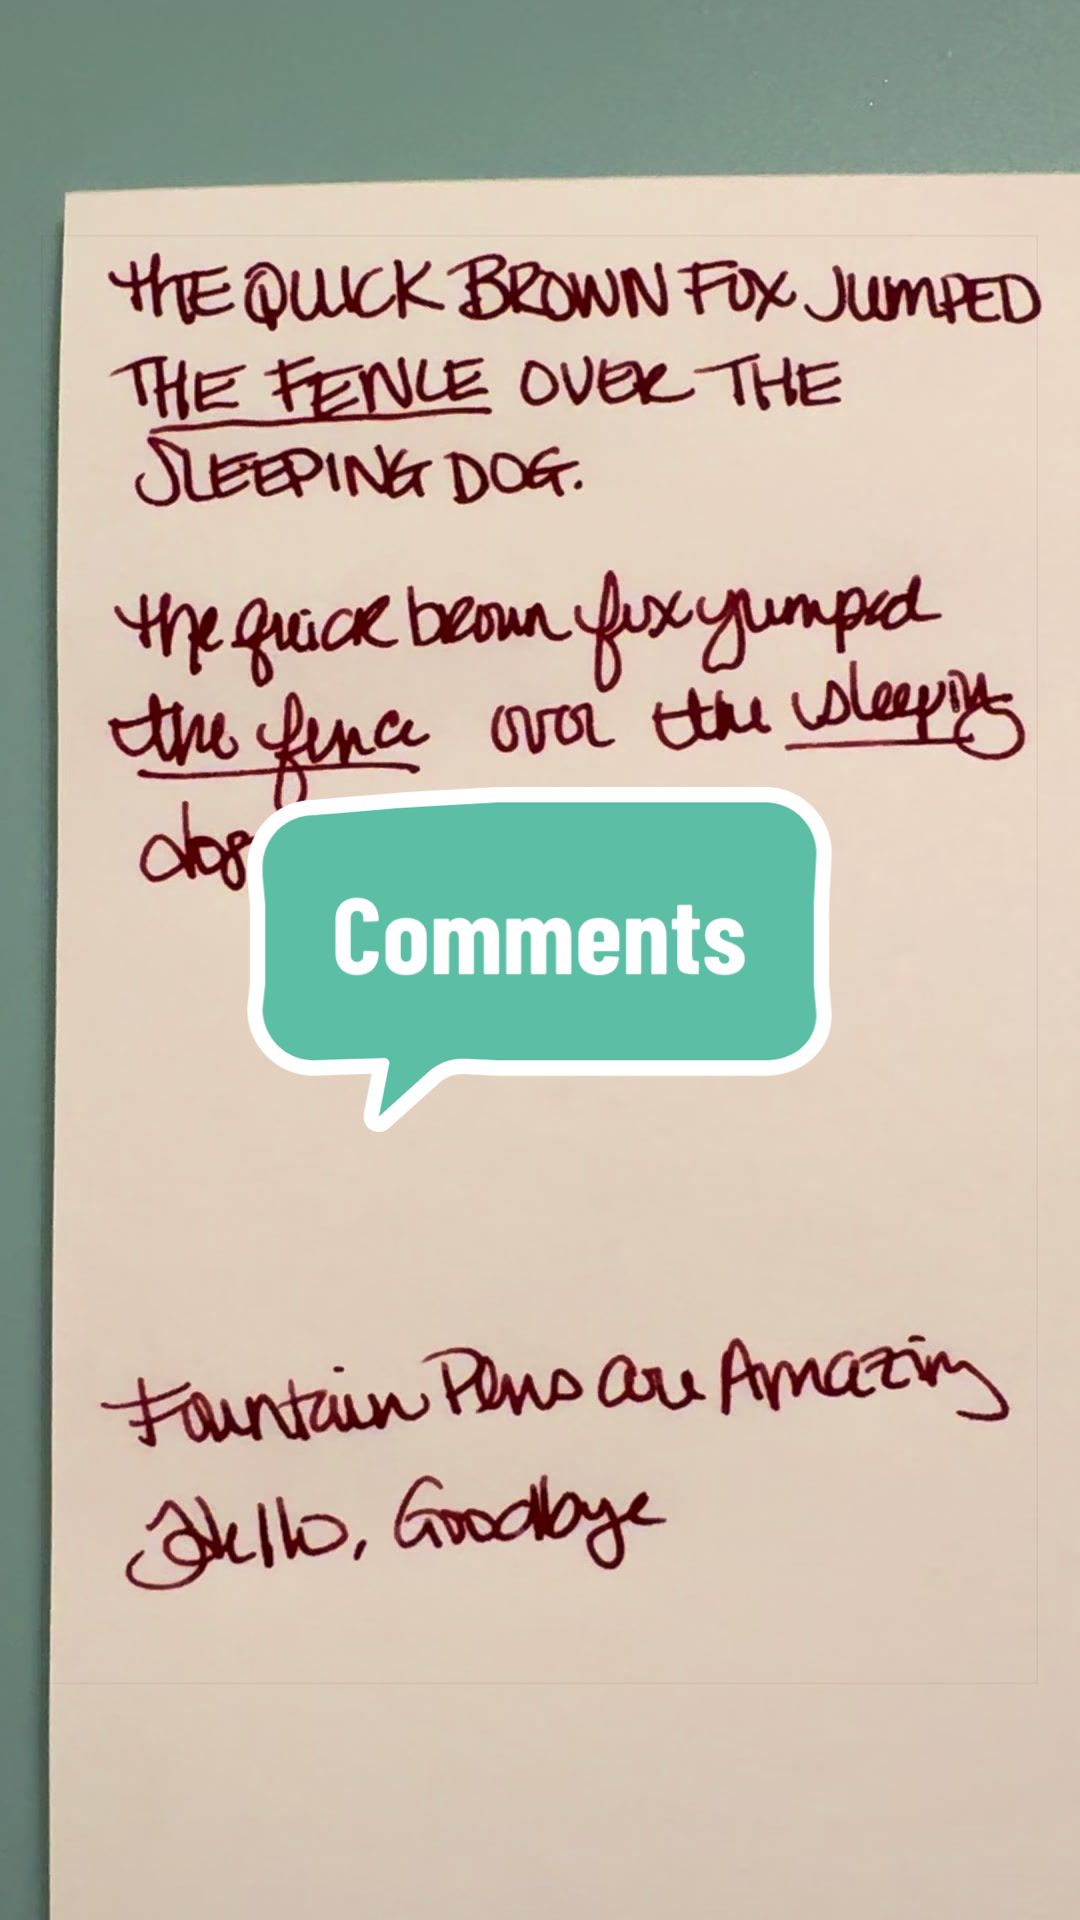 THE QUICK BROWN FOX JUMPED
THE FENCE OVER THE
SLEEPING DOG.
the quick brown fox jumped
the fence over the sleeping
dog
Comments
Fountain Pens are Amazing
Hello, Goodbye